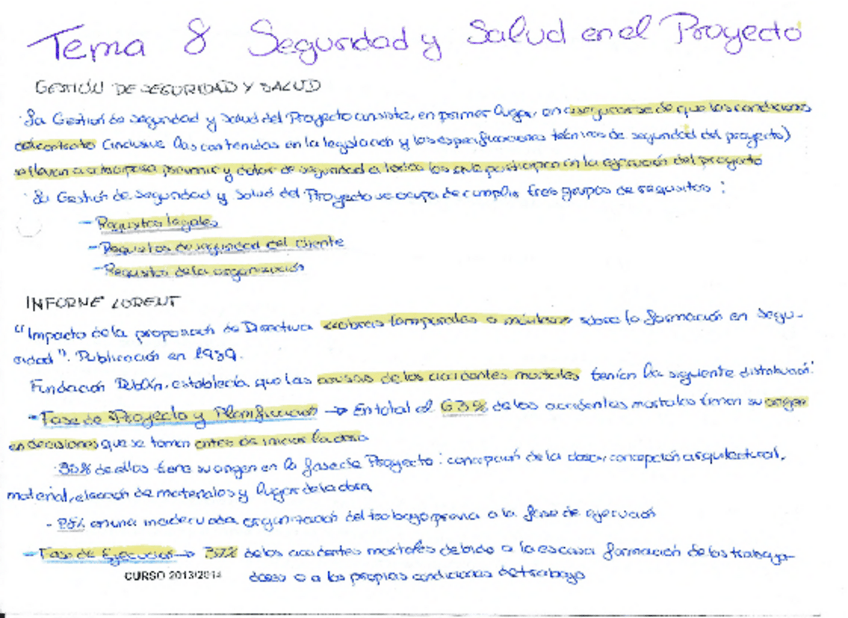 Tema 8 Seguridad y Salud en el Proyecto
GESTIÓN DE SEGURIDAD Y SALUD
La Gestión de seguridad y salud del Proyecto consiste, en primer lugar, en asegurarse de que las condiciones
del contrato (inclusive las contenidas en la legislación y las especificaciones técnicas de seguridad del proyecto)
se llevan a cabo para prevenir y dotar de seguridad a todos los que participen en la ejecución del proyecto
La Gestión de Seguridad y Salud del Proyecto se ocupa de cumplir tres grupos de requisitos:
- Requisitos legales
- Requisitos de seguridad del cliente
- Requisitos de la organización
INFORME LORENT
"Impacto de la proposición de Directiva obras temporales o móviles sobre la formación en Segu-
ridad". Publicación en 1989.
Fundación Dublín, establecía que las causas de los accidentes mortales tenían la siguiente distribución:
- Fase de Proyecto y Planificación → En total el 63% de los accidentes mortales tienen su origen
en decisiones que se toman antes de iniciar la obra
35% de ellos tiene su origen en la fase de Proyecto: concepción de la obra, concepción arquitectural,
material, elección de materiales y lugar de la obra
- 28% en una inadecuada organización del trabajo previa a la fase de ejecución
- Fase de Ejecución → 37% de los accidentes mortales debido a la escasa formación de los trabaja-
dores o a las propias condiciones del trabajo
CURSO 2013/2014